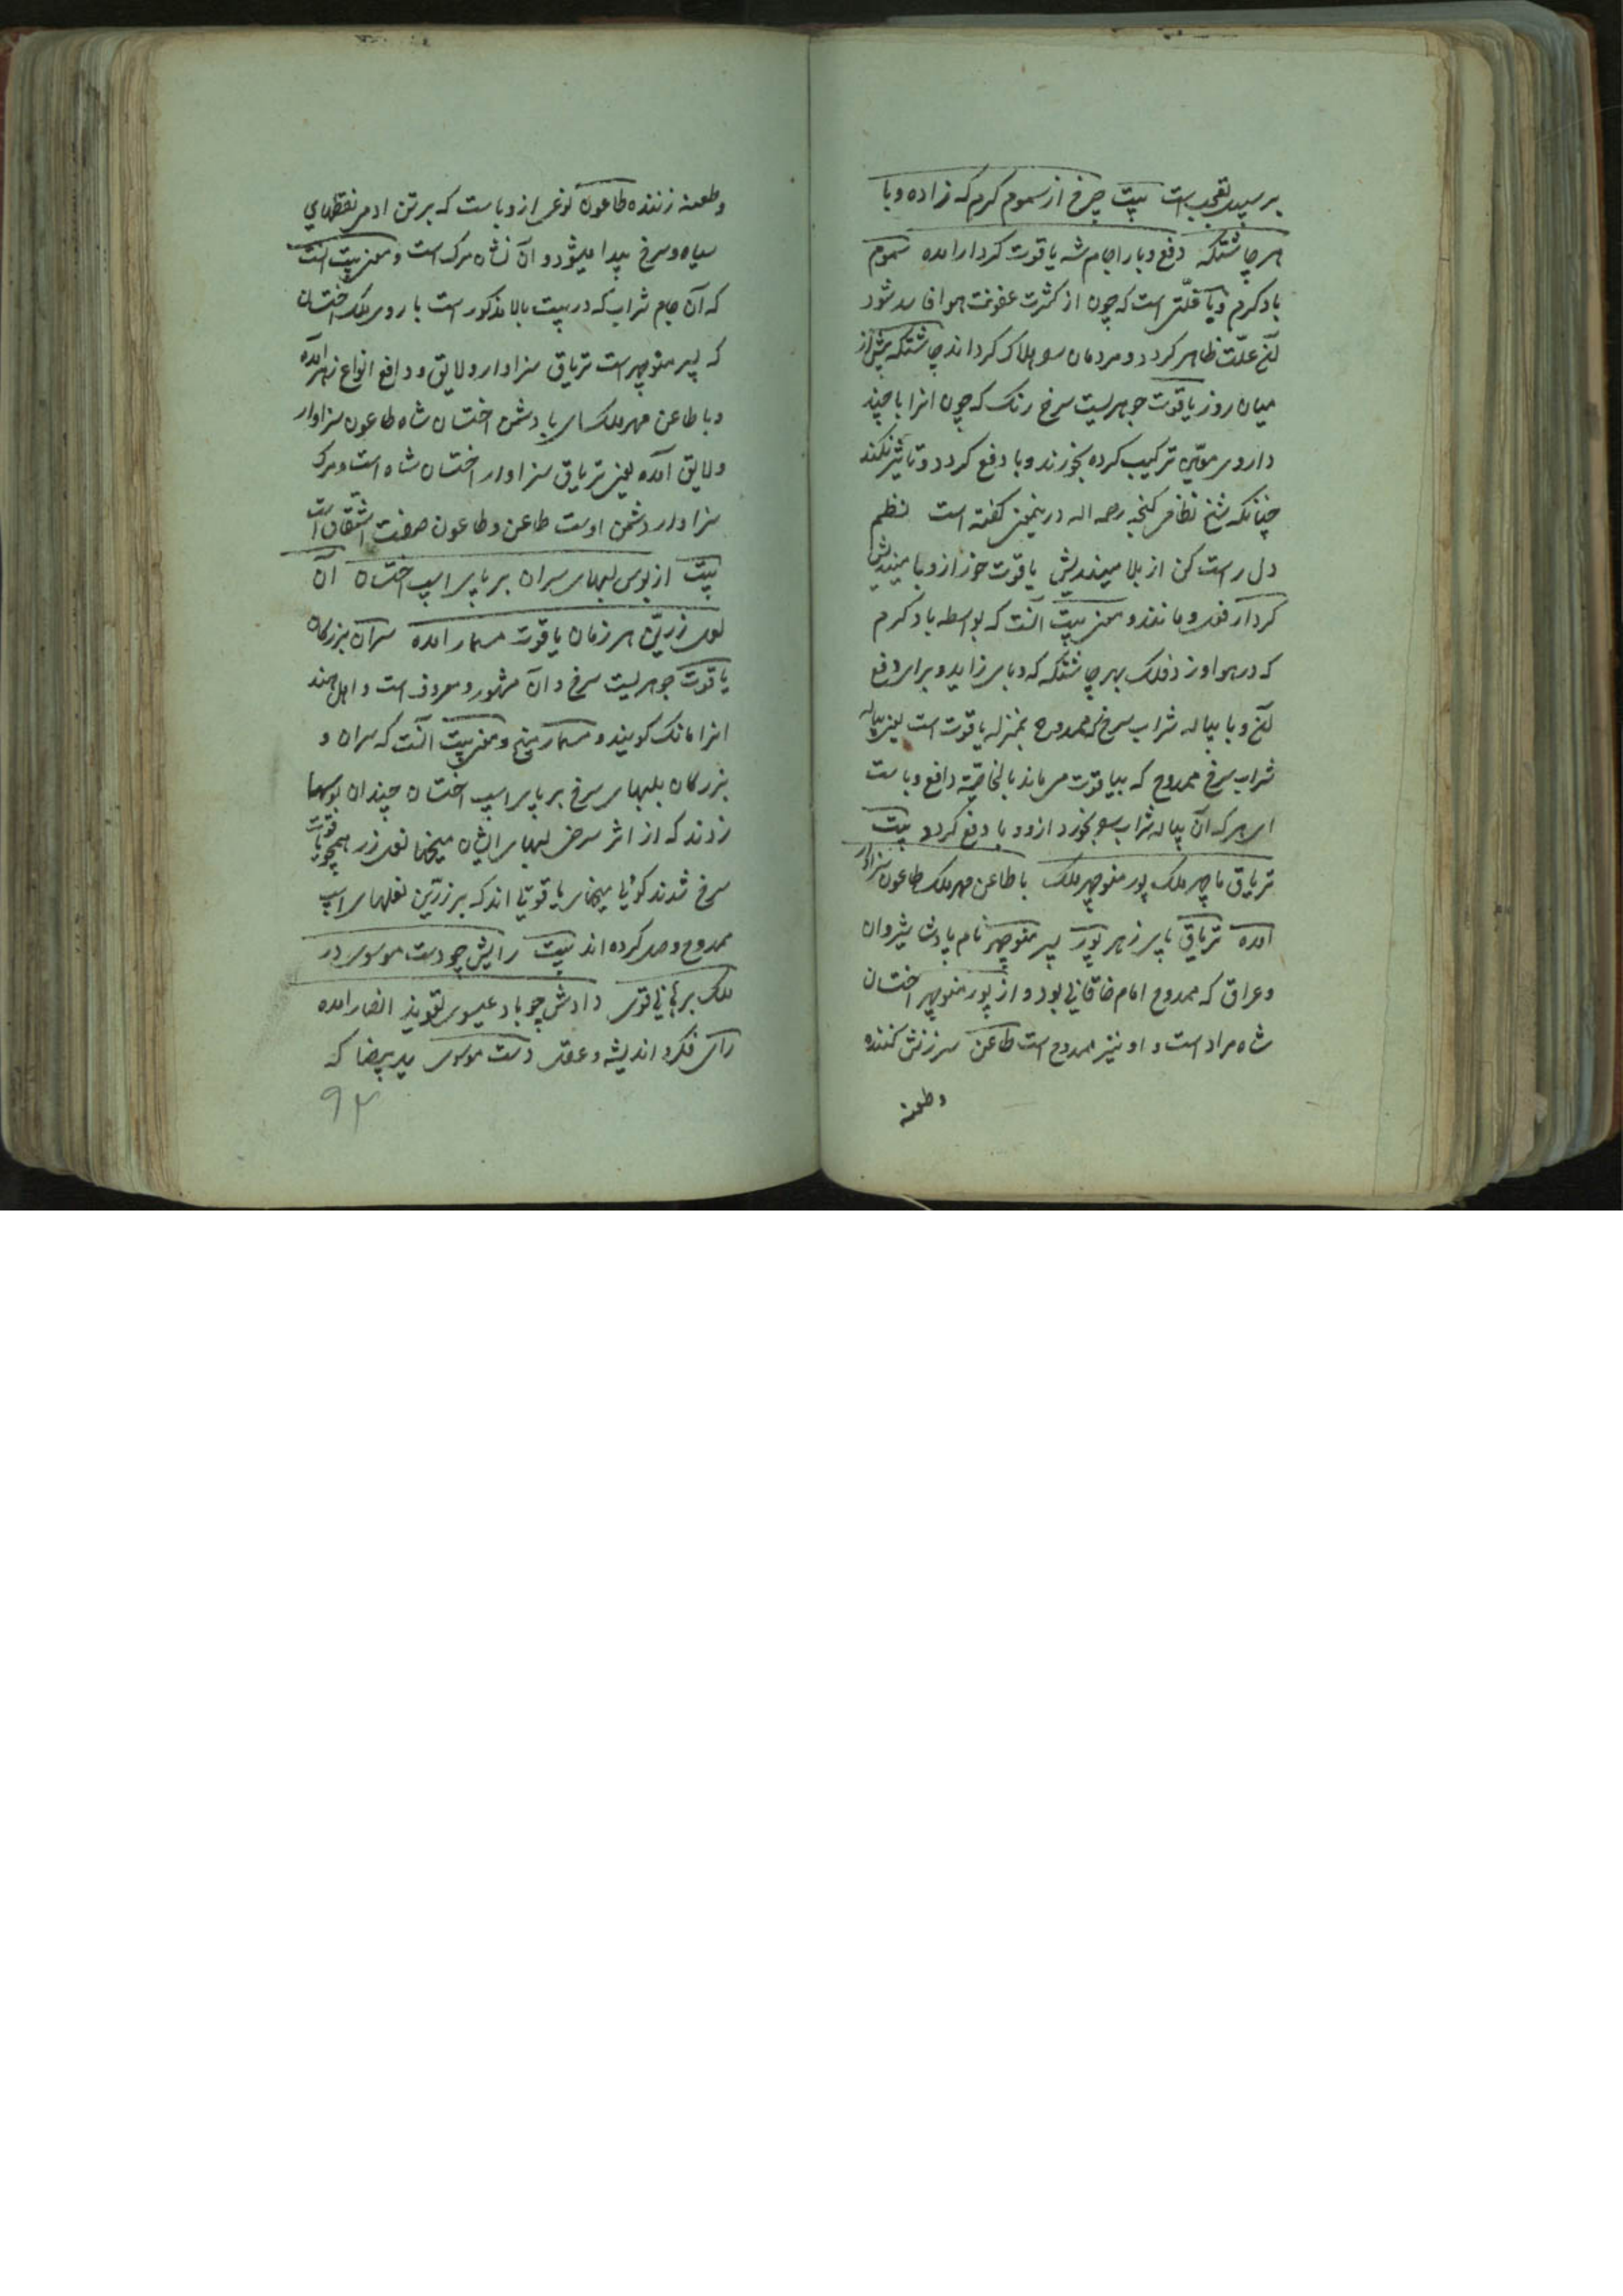 بر سبیل تعجب است بیت چرخ از سموم گرم که زاده وبا
هر چاشتگه دفع وبا را جام شه یاقوت کردار آمده سموم
باد گرم وبا علّتی است که چون از کثرت عفونت هوا فاسد شود
آن علّت ظاهر گردد و مردمان را هلاک گرداند چاشتگه پیش از
میان روز یاقوت جوهریست سرخ رنگ که چون انرا با چند
داروی ترکیب کرده بخورند وبا دفع گردد و تاثیر نکند
چنانکه شیخ نظامی گنجه رحمه اله درینمعنی گفته است نظم
دل راست کن از بلا میندیش یاقوت خور از وبا میندیش
کردار فعل و مانند و معنی بیت آنست که بواسطه باد گرم
که در هوا وزد فلک بهر چاشتگه که وبا می زاید و برای دفع
آن وبا پیاله شراب سرخ ممدوح بمنزله یاقوت است یعنی پیاله
شراب سرخ ممدوح که بیاقوت می ماند بالخاصیّة دافع وباست
ای هر که آن پیاله شراب بخورد ازو وبا دفع گردد بیت
تریاق ما چهر ملک پور منوچهر ملک با طاعن مهر ملک طاعون سزاوار
آمده تریاق پاپر زهر پور پسر منوچهر نام پادشا شیروان
و عراق که ممدوح امام خاقانی بود و از پور منوچهر اختسان
شاه مراد است و او نیز ممدوح است طاعن سرزنش کننده
وطعنه
وطعنه زننده طاعون نوعی از وباست که بر تن ادمی نقطهای
سیاه و سرخ پیدا میشود و آن نشان مرگ است و معنی بیت آنست
که آن جام شراب که در بیت بالا مذکور است با روی ملک اختسان
که پسر منوچهر است تریاق سزاوار و لایق و دافع انواع زهر آمده
و با طاعن مهر ملک ای با دشمن اختسان شاه طاعون سزاوار
و لایق آمده یعنی تریاق سزاوار اختسان شاه است و مرگ
سزاوار دشمن اوست طاعن و طاعون صفت اشتقاق است
بیت از بوس لبهای سران بر پای اسپ اختسان آن
نعل زرین هر زمان یاقوت مسمار آمده سران بزرگان
یاقوت جوهریست سرخ و آن مشهور و معروف است و اهل هند
انرا مانک گویند و مسمار میخ و معنی بیت آنست که سران و
بزرگان بلبهای سرخ بر پای اسپ اختسان چندان بوسها
زدند که از اثر سرخی لبهای ایشان میخها نعل زر همچو یاقوت
سرخ شدند گویا میخهای یاقوتی اند که بر زرین نعلهای اسپ
ممدوح وصل کرده اند بیت رایش چو دست موسوی در
ملک برهانی قوی دادش چو باد عیسوی تعویذ انصار آمده
رای فکر و اندیشه و عقل دست موسوی ید بیضا که
۹۲